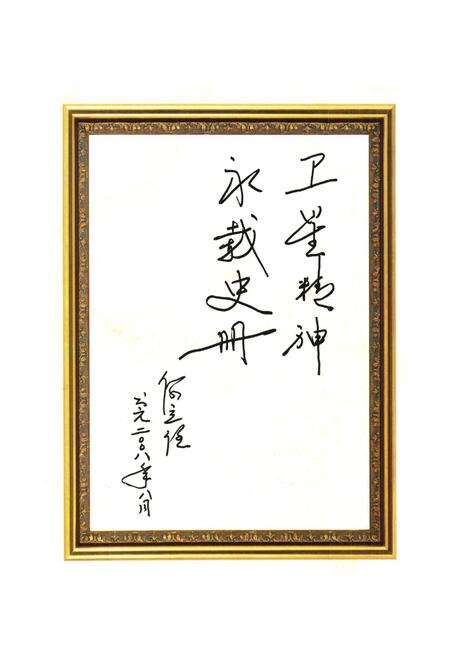 卫星精神
永载史册
何立任
公元二〇〇八年八月